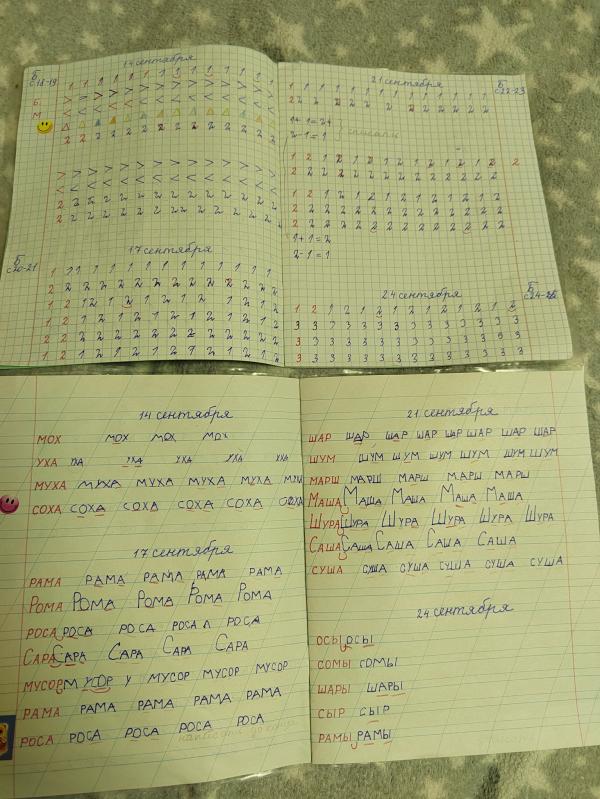 14 сентября
Б
с18-19
1 1 1 1 1 1 1 1 1 1 1 1 1
Б. > = > > > > > > > > > > >
М < < < < < < < < < < < < <
2 2 2 2 2 2 2 2 2 2 2 2 2
> > > > > > > > > > > > >
< < < < < < < < < < < < <
2 2 2 2 2 2 2 2 2 2 2 2 2
2 2 2 2 2 2 2 2 2 2 2 2 2
17 сентября
Б
с20-21
1 1 1 1 1 1 1 1 1 1 1 1 1
2 2 2 2 2 2 2 2 2 2 2 2 2
1 2 1 2 1 2 1 2 1 2 1 2
1 2 1 2 1 2 1 2 1 2 1 2 1 2
2 2 2 2 2 2 2 2 2 2 2 2 2
1 2 1 2 1 2 1 2 1 2 1 2 2
21 сентября
Б
с22-23
1 1 1 1 1 1 1 1 1 1 1 1 1 1
2 2 2 2 2 2 2 2 2 2 2 2
2-1=1
1 2 1 2 1 2 1 2 1 2 1 2 1 2 2
2 2 2 2 2 2 2 2 2 2 2 2 2 2
1 2 1 2 1 2 1 2 1 2 1 2 1 2
2 2 2 2 2 2 2 2 2 2 2 2 2 2
2 2 2 2 2 2 2 2 2 2 2 2 2 2
1+1=2
2-1=1
24 сентября
Б
с24-25
1 2 1 2 1 2 1 2 1 2 1 2 1 2
3 3 3 3 3 3 3 3 3 3 3 3 3 3
3 3 3 3 3 3 3 3 3 3 3 3 3 3
3 3 3 3 3 3 3 3 3 3 3 3 3 3
14 сентября
МОХ МОХ МОХ МОХ
УХА УХА УХА УХА УХА УХА
МУХА МУХА МУХА МУХА МУХА МУХА
СОХА СОХА СОХА СОХА СОХА СОХА
17 сентября
РАМА РАМА РАМА РАМА РАМА
РОМА РОМА РОМА РОМА РОМА
РОСА РОСА РОСА РОСА РОСА
САРА САРА САРА САРА САРА
МУСОР МУСОР У МУСОР МУСОР МУСОР
РАМА РАМА РАМА РАМА РАМА
РОСА РОСА РОСА РОСА РОСА
21 сентября
ШАР ШАР ШАР ШАР ШАР ШАР ШАР ШАР
ШУМ ШУМ ШУМ ШУМ ШУМ ШУМ ШУМ
МАРШ МАРШ МАРШ МАРШ МАРШ
МАША МАША МАША МАША МАША
ШУРА ШУРА ШУРА ШУРА ШУРА ШУРА
САША САША САША САША САША
СУША СУША СУША СУША СУША СУША
24 сентября
ОСЫ ОСЫ
СОМЫ СОМЫ
ШАРЫ ШАРЫ
СЫР СЫР
РАМЫ РАМЫ